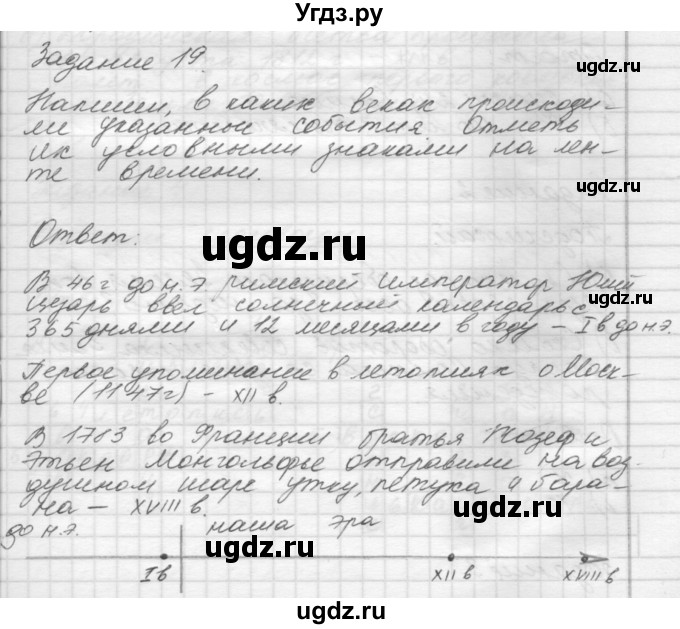 Угдз.ру
Задание 19.
Напиши, в каких веках происходи-
ли указанные события Отметь
их условными знаками на лен-
те времени.
Ответ:
В 46 г до н.э римский император Юлий
Цезарь ввел солнечный календарь с
365 днями и 12 месяцами в году – I в до н.э.
Первое упоминание в летописях о Моск-
ве (1147г) – XII в.
В 1783 во Франции братья Жозеф и
Этьен Монгольфье отправили на воз-
душном шаре утку, петуха и бара-
на – XVIII в.
до н.э. наша эра
I в XII в XVIII в
ugdz.ru
ugdz.ru
ugdz.ru
ugdz.ru
ugdz.ru
ugdz.ru
ugdz.ru
ugdz.ru
ugdz.ru